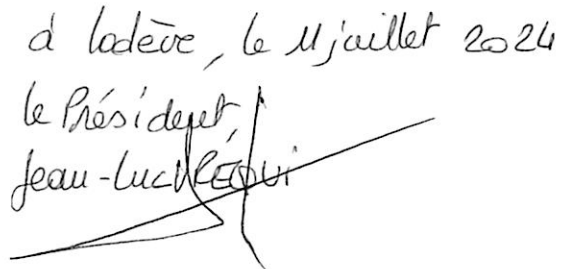 à Lodève, le 11 juillet 2024
le Président,
Jean-Luc REQUI